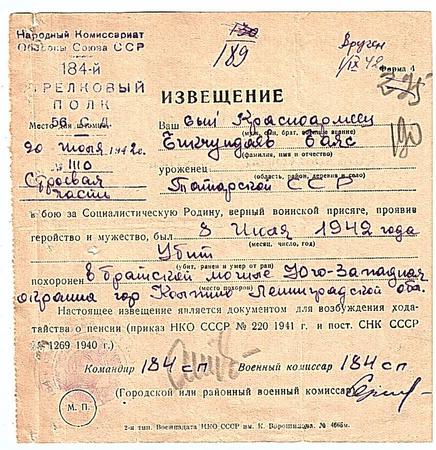 Народный Комиссариат
Обороны Союза ССР
184-й
СТРЕЛКОВЫЙ
ПОЛК
56 С.Д.
189
Вручен
1/IX 42
Форма 4
ИЗВЕЩЕНИЕ
Место для штампа
20 июля 1942 г.
№ 1110
Строевая
часть
Ваш сын Красноармеец
(муж, сын, брат, военное звание)
Баяс
(фамилия, имя и отчество)
уроженец
(область, район, деревня и село)
Татарской ССР
в бою за Социалистическую Родину, верный воинской присяге, проявив
геройство и мужество, был 8 июля 1942 года
(месяц, число, год)
Убит
(убит, ранен и умер от ран)
похоронен в братской могиле Юго-Западная
(место похорон)
окраина гор Колпино Ленинградской обл.
Настоящее извещение является документом для возбуждения хода-
тайства о пенсии (приказ НКО СССР № 220 1941 г. и пост. СНК СССР
№ 1269 1940 г.)
Командир 184 сп Военный комиссар 184 сп
(Городской или районный военный комиссар)
М. П.
2-я тип. Воениздата НКО СССР им. К. Ворошилова.